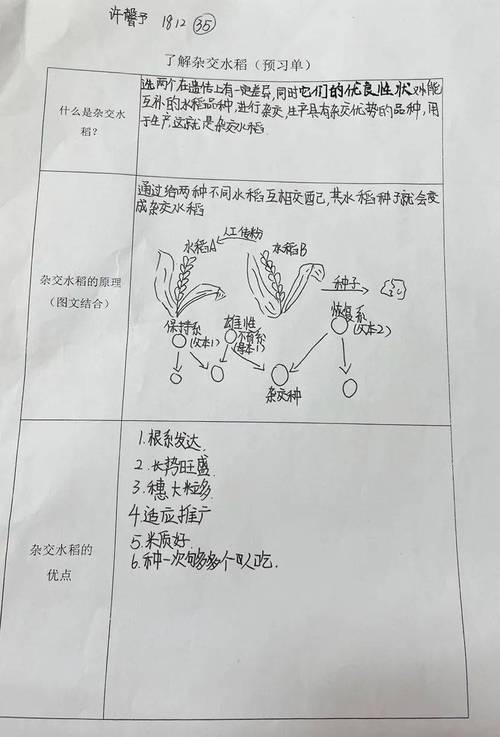 许馨予 1812 35
了解杂交水稻（预习单）
什么是杂交水
稻？
选两个在遗传上有一定差异，同时它们的优良性状又能
互补的水稻品种，进行杂交，生产具有杂交优势的品种，用
于生产，这就是杂交水稻。
杂交水稻的原理
（图文结合）
通过给两种不同水稻互相交配，其水稻种子就会变
成杂交水稻
人工传粉
水稻A 水稻B
种子
保持系
(父本1)
雄性
不育系
(母本1)
恢复系
(父本2)
杂交种
杂交水稻的
优点
1.根系发达
2.长势旺盛
3.穗大粒多
4.适应推广
5.米质好
6.种一次够多个人吃.